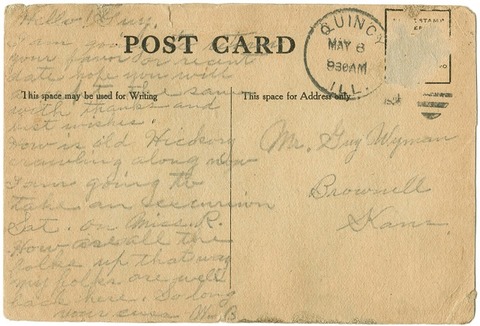 Hello Guy.
POST CARD
I am
your favor of recent
date hope you will
the same
This space may be used for Writing
with thanks and
best wishes.
How is old Hickory
crawling along now
I am going to
take an excursion
Sat. on Miss. R.
How are all the
folks up that way
my folks are well
back here. So long
W. B.
QUINCY
MAY 6
930AM
ILL.
This space for Address only
Mr. Guy Wyman
Brownell
Kans.